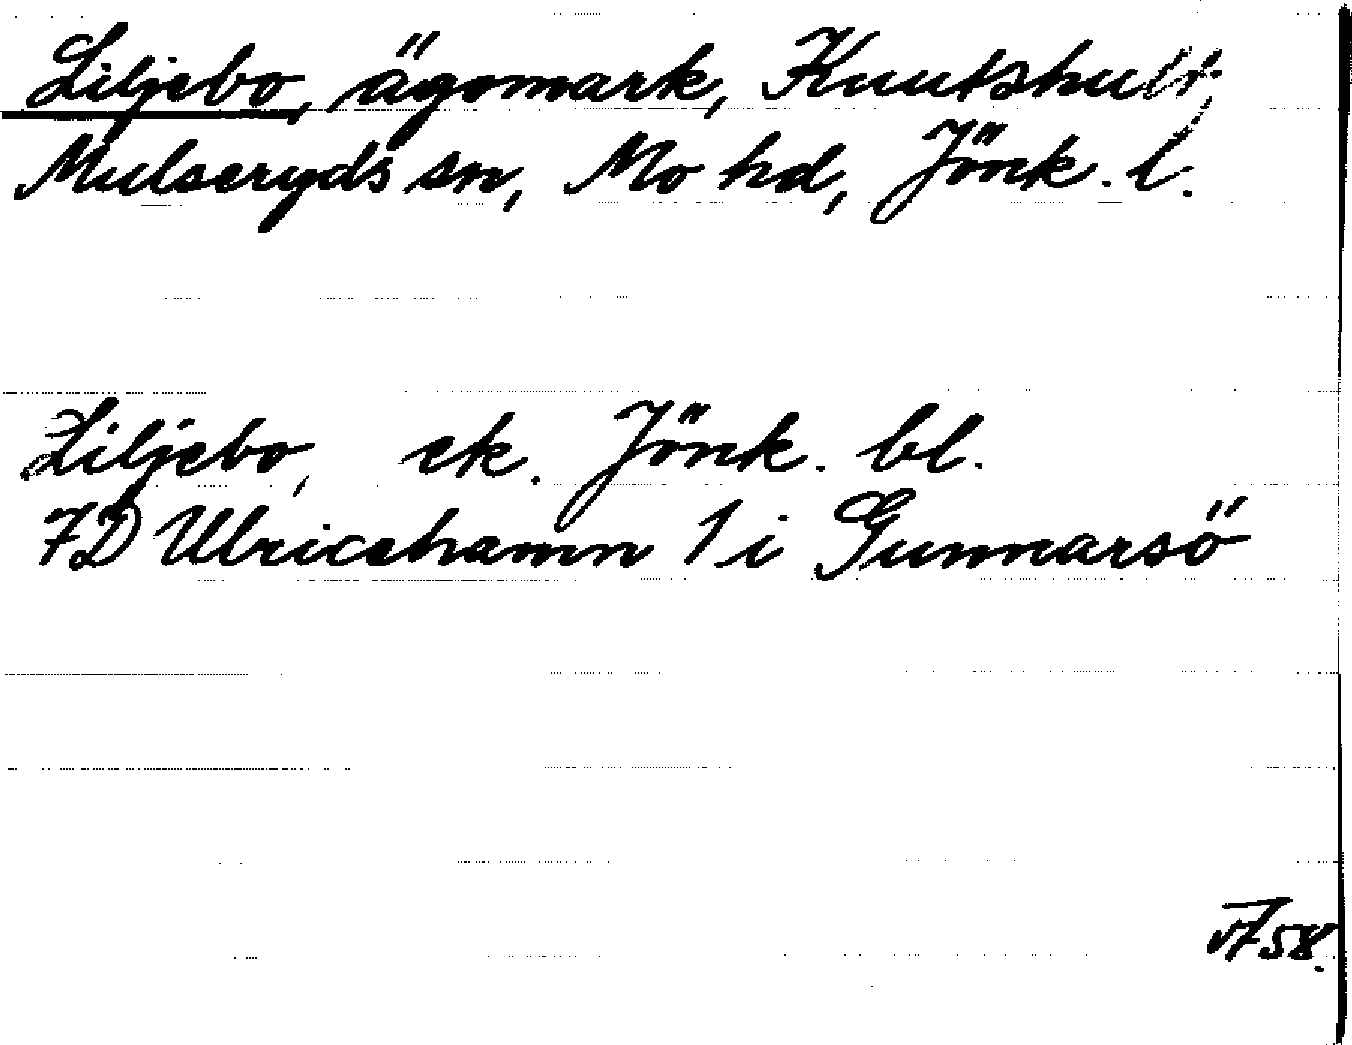 Liljebo, ägomark, Knutshult,
Mulseryds sn, Mo hd, Jönk. l.
Liljebo, ek. Jönk. bl.
7D Ulricehamn 1 i Gunnarsö
58.